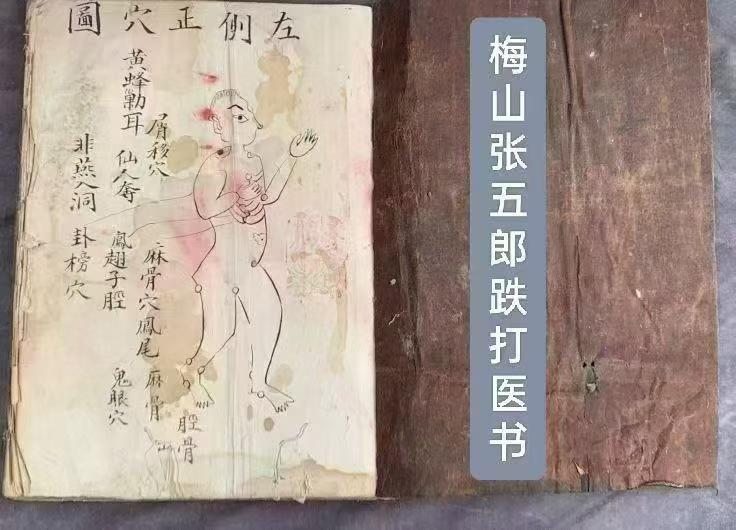 左側正穴圖
屑移穴
黄蜂勦耳
仙人奪
非燕入洞
麻骨穴鳳尾
鳳翅子脛
卦榜穴
麻骨
鬼眼穴
脛骨
梅山张五郎跌打医书